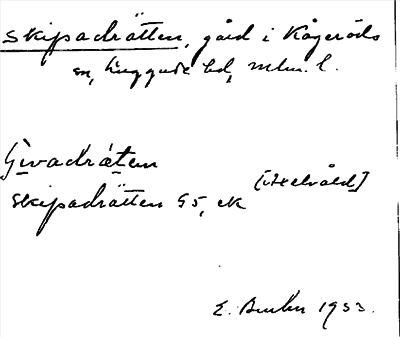 Skipadrätten, gård i Kågeröds
sn, Luggude hd, Mlm. l.
Givadráten
Skipadrätten 95, ek
[Axelvåld]
E. 1933.